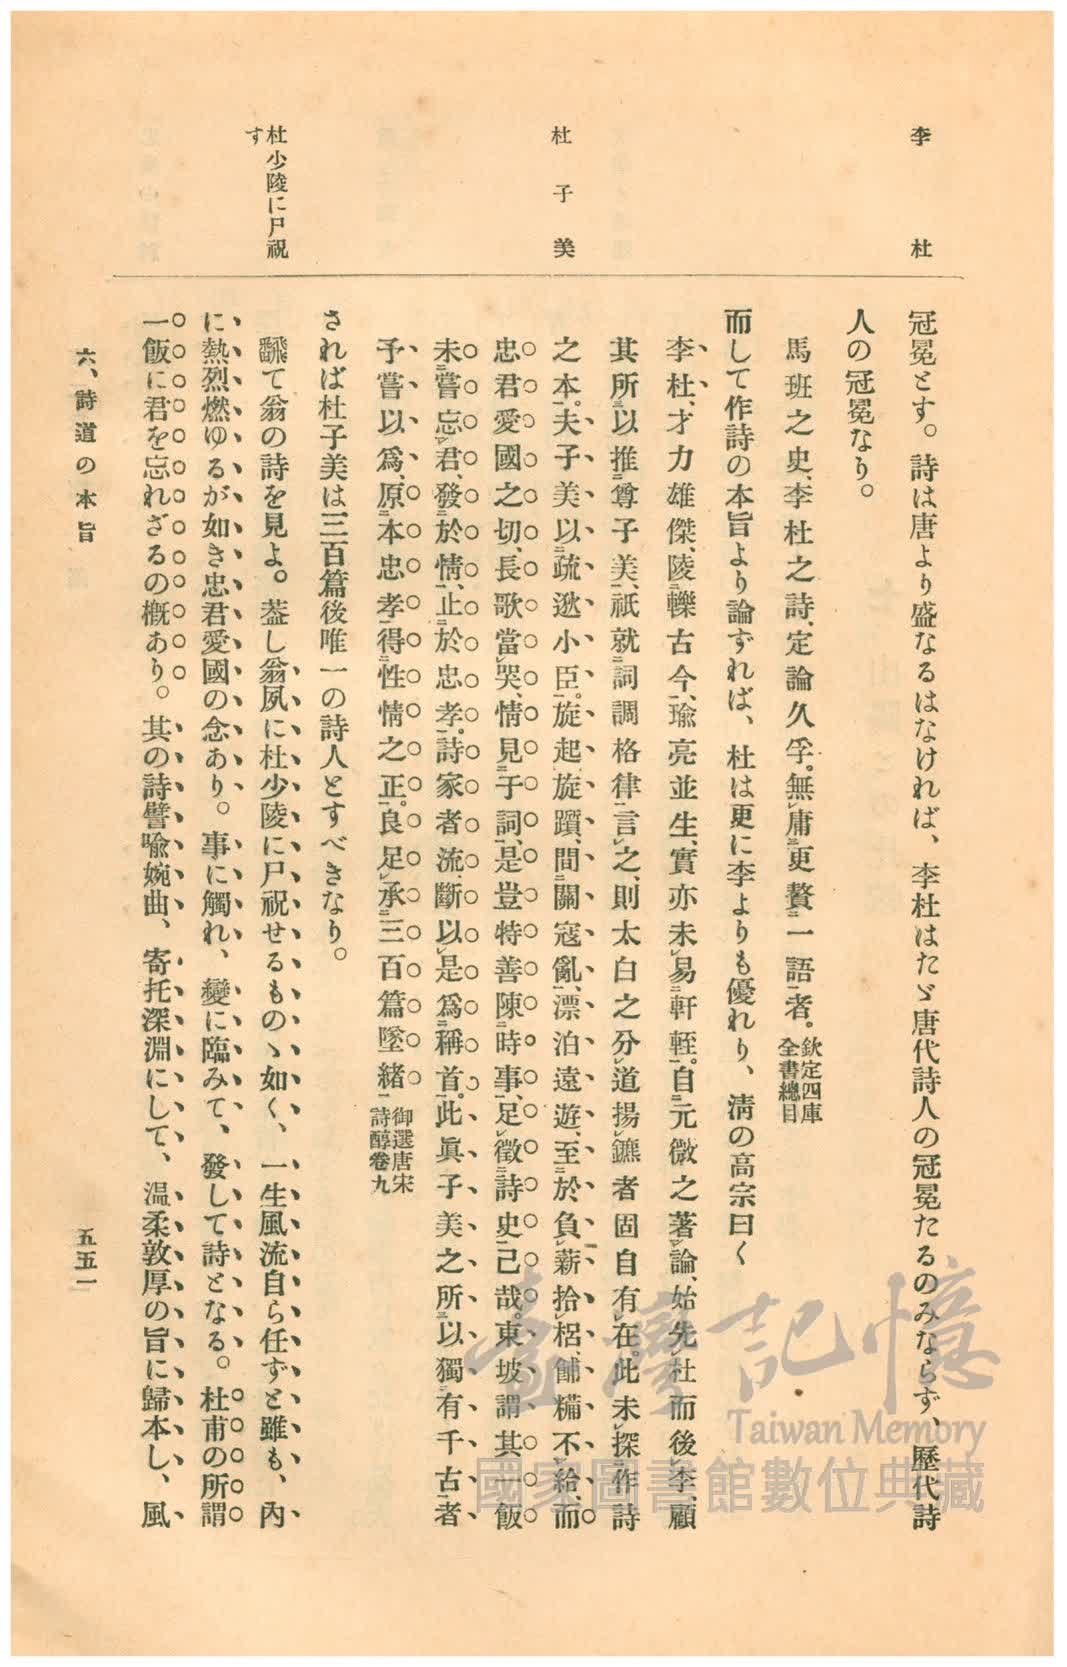 李杜
杜子美
杜少陵に尸祝
す
冠冕とす。詩は唐より盛なるはなければ、李杜はたゞ唐代詩人の冠冕たるのみならず、歷代詩
人の冠冕なり。
馬班之史、李杜之詩、定論久孚。無レ庸三更贅二一語一者。欽定四庫全書總目
而して作詩の本旨より論ずれば、杜は更に李よりも優れり、淸の高宗曰く
李、杜、才力雄傑、陵二轢古今一、瑜亮並生、實亦未レ易二軒輊一。自二元微之著一レ論、始先レ杜而後レ李、顧
其所三以推二尊子美一、祇就二詞調格律一言レ之、則太白之分レ道揚レ鑣者固自有レ在。此未レ探二作詩
之本一。夫子美以二疏逖小臣一。旋起旋躓、間二關寇亂一、漂泊遠遊、至二於負レ薪拾一レ梠、餔糒不レ給、而
忠君愛國之切、長歌當レ哭、情見二于詞一、是豈特善陳二時事一、足レ徵二詩史一已哉。東坡謂其一飯
未三嘗忘二レ君、發二於情一、止二於忠孝一。詩家者流、斷以レ是爲二稱首一。此眞子美之所三以獨二有千古一者
予嘗以爲、原二本忠孝一得二性情之正一。良足レ承二三百篇墜緒一御選唐宋詩醇卷九
されば杜子美は三百篇後唯一の詩人とすべきなり。
飜て翁の詩を見よ。葢し翁夙に杜少陵に尸祝せるものゝ如く、一生風流自ら任ずと雖も、內
に熱烈燃ゆるが如き忠君愛國の念あり。事に觸れ、變に臨みて、發して詩となる。杜甫の所謂
一飯に君を忘れざるの槪あり。其の詩譬喩婉曲、寄托深淵にして、溫柔敦厚の旨に歸本し、風
六、詩道の本旨
五五一
臺灣記憶
Taiwan Memory
國家圖書館數位典藏